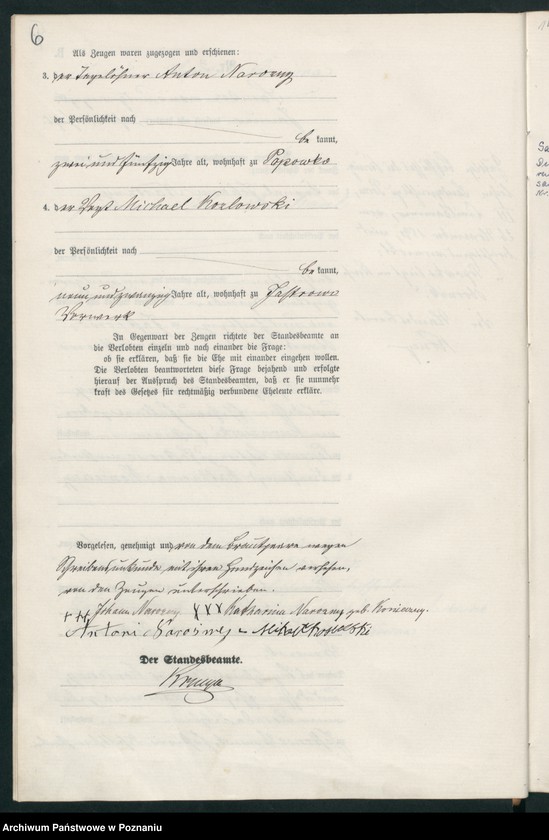 6
B. Als Zeugen waren zugezogen und erschienen:
3. der Tagelöhner Anton Narozny
der Persönlichkeit nach
be kannt,
zwei und fünfzig Jahre alt, wohnhaft zu Popowko
4. der Vogt Michael Kozlowski
der Persönlichkeit nach
be kannt,
neun und zwanzig Jahre alt, wohnhaft zu Jastrowo
Vorwerk
In Gegenwart der Zeugen richtete der Standesbeamte an
die Verlobten einzeln und nach einander die Frage:
ob sie erklären, daß sie die Ehe mit einander eingehen wollen.
Die Verlobten beantworteten diese Frage bejahend und erfolgte
hierauf der Ausspruch des Standesbeamten, daß er sie nunmehr
kraft des Gesetzes für rechtmäßig verbundene Eheleute erkläre.
Vorgelesen, genehmigt und von dem Brautpaare wegen
Schreibensunkunde mit ihren Handzeichen versehen,
von den Zeugen unterschrieben.
+++ Johann Narozny XXX Katharina Narozny geb.
Antoni Narożny
Der Standesbeamte.
Archiwum Państwowe w Poznaniu